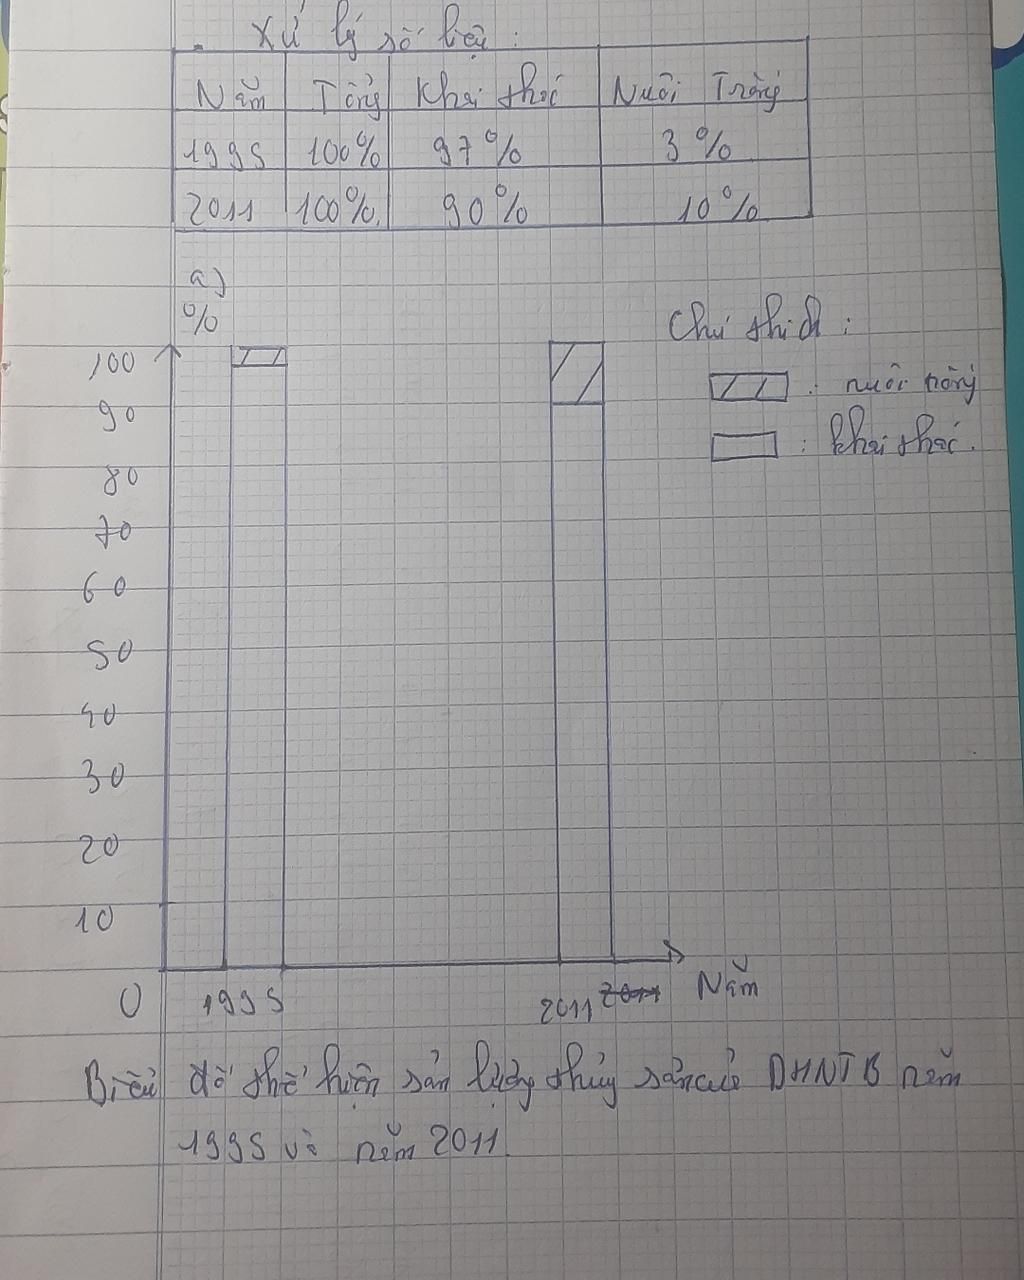 Xử lý số liệu :
Năm Tổng Khai thác Nuôi Trồng
1995 100% 97% 3%
2011 100%. 90% 10%
a)
%
Chú thích :
100
: nuôi trồng
90
: khai thác.
80
70
60
50
40
30
20
10
0 1995 2011 2011 Năm
Biểu đồ thể hiện sản lượng thủy sản của DHNTB năm
1995 và năm 2011